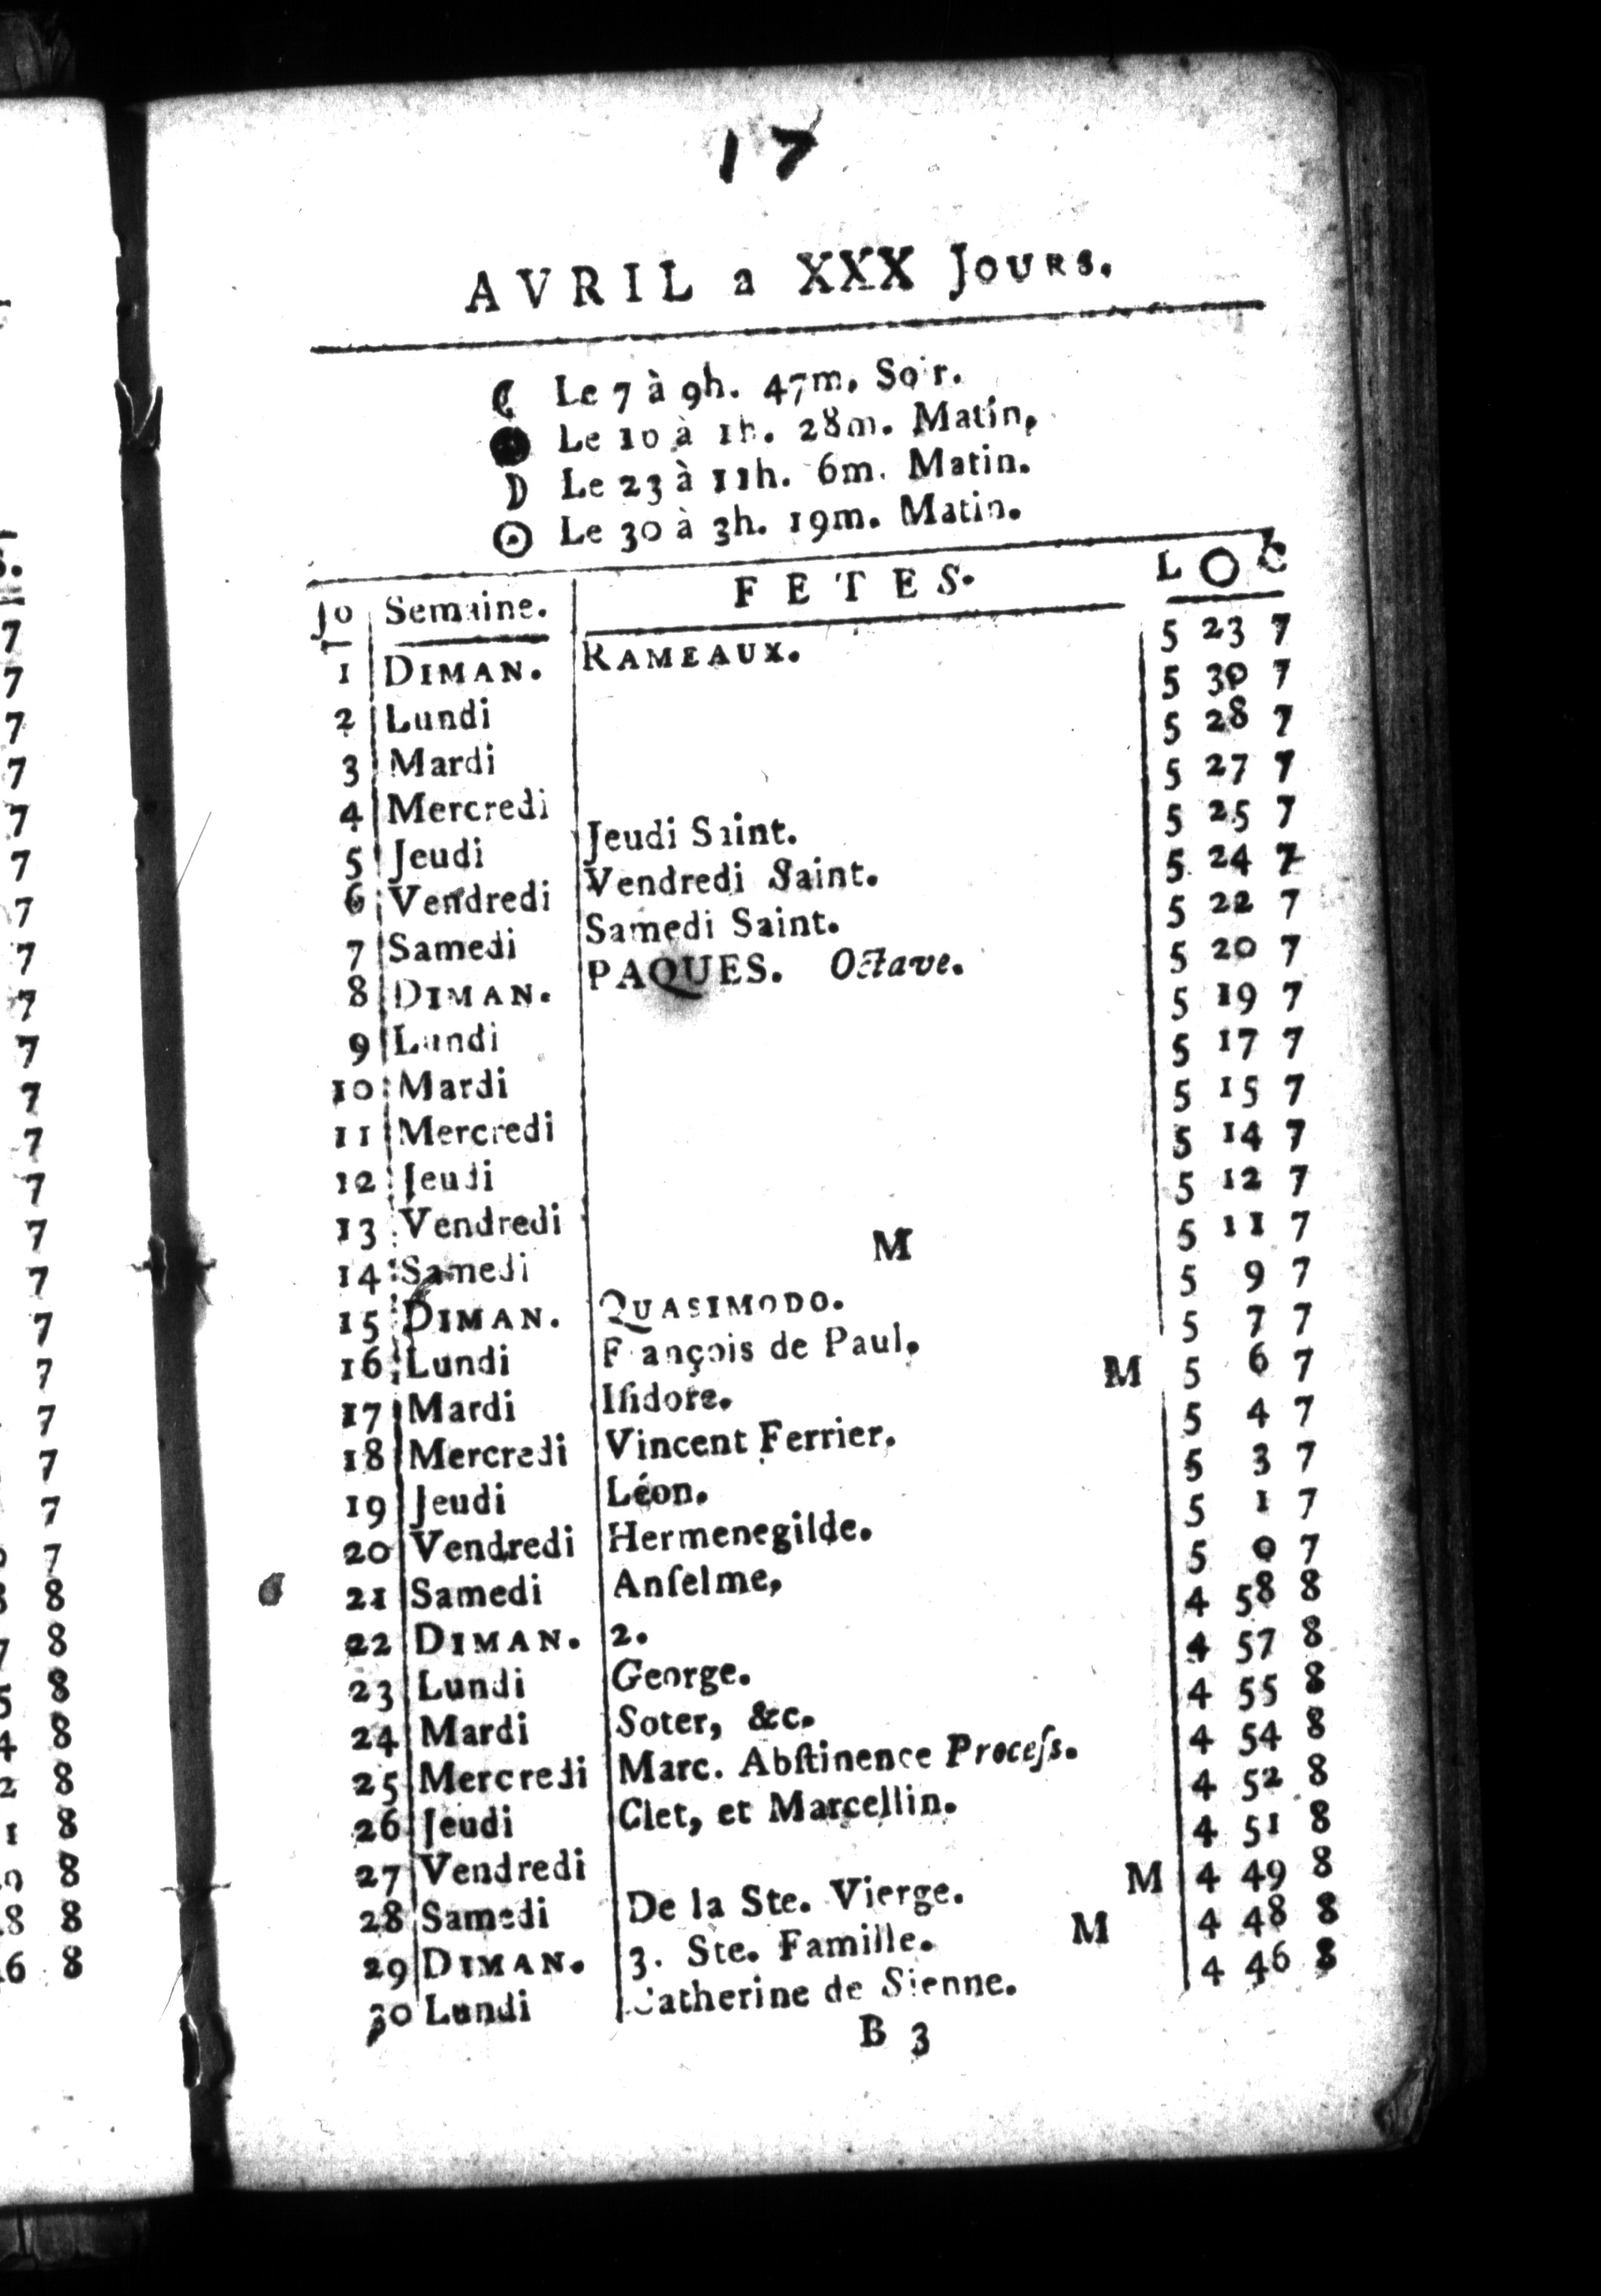 17
AVRIL a XXX JOURS.
☾ Le 7 à 9h. 47m. Soir.
● Le 10 à 1h. 28m. Matin,
☽ Le 23 à 11h. 6m. Matin.
☉ Le 30 à 3h. 19m. Matin.
Jo Semaine. FETES. L O C
1 DIMAN. RAMEAUX. 5 23 7
2 Lundi 5 30 7
3 Mardi 5 28 7
4 Mercredi 5 27 7
5 Jeudi Jeudi Saint. 5 25 7
6 Vendredi Vendredi Saint. 5 24 7
7 Samedi Samedi Saint. 5 22 7
8 DIMAN. PAQUES. Octave. 5 20 7
9 Lundi 5 19 7
10 Mardi 5 17 7
11 Mercredi 5 15 7
12 Jeudi 5 14 7
13 Vendredi 5 12 7
14 Samedi M 5 11 7
15 DIMAN. QUASIMODO. 5 9 7
16 Lundi François de Paul. 5 7 7
17 Mardi Iſidore. M 5 6 7
18 Mercredi Vincent Ferrier. 5 4 7
19 Jeudi Léon. 5 3 7
20 Vendredi Hermenegilde. 5 1 7
21 Samedi Anſelme, 5 0 7
22 DIMAN. 2. 4 58 8
23 Lundi George. 4 57 8
24 Mardi Soter, &c. 4 55 8
25 Mercredi Marc. Abſtinence Proceſs. 4 54 8
26 Jeudi Clet, et Marcellin. 4 52 8
27 Vendredi 4 51 8
28 Samedi De la Ste. Vierge. M 4 49 8
29 DIMAN. 3. Ste. Famille. M 4 48 8
30 Lundi Catherine de Sienne. 4 46 8
B 3